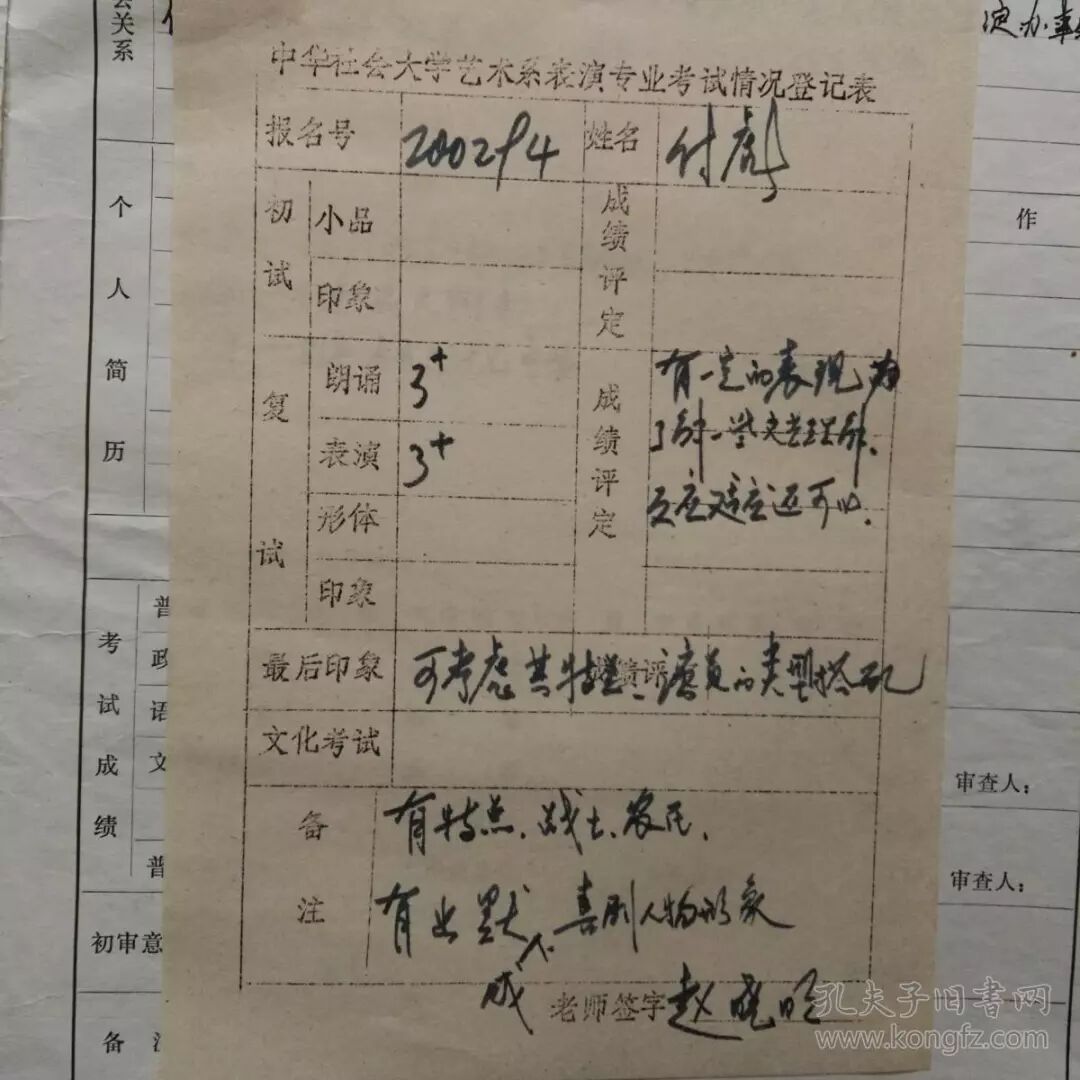 会关系
定办事
中华社会大学艺术系表演专业考试情况登记表
报名号 200294 姓名 付彪
初试 小品 成绩评定
印象
复试 朗诵 3+ 成绩评定 有一定的表现力
了解一些文艺理解.
表演 3+
反应适应还可以.
形体
印象
最后印象 可考虑其特型演员的类型搭配
成绩评
文化考试
备注 有特点、战士、农民.
有幽默 喜剧人物形象
或
老师签字 赵晓明
个人简历
作
考试成绩
普
政
语
文
普
审查人:
审查人:
初审意
备注
孔夫子旧书网
www.kongfz.com